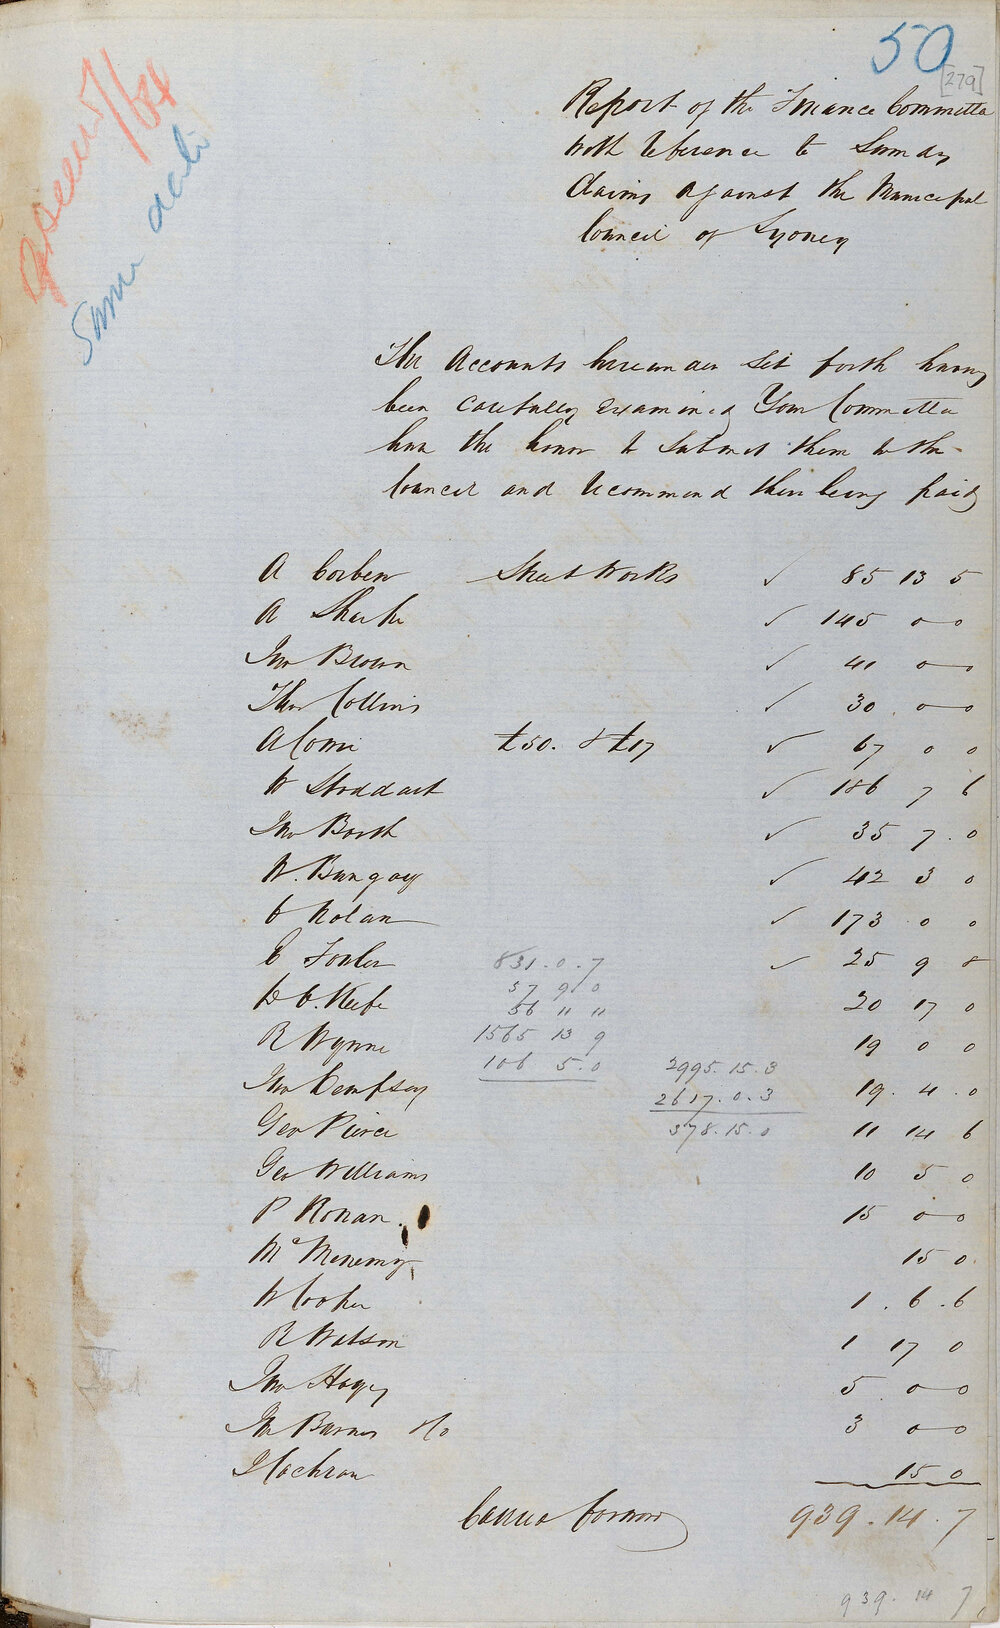 50
[279]
5/64
Same date
Report of the Finance Committee
with reference to Sundry
Claims against the Municipal
Council of Sydney
The Accounts hereunder set forth having
been carefully examined Your Committee
have the honor to submit them to the
Council and recommend their being paid
A Corben Street Works ✓ 85 13 5
A ✓ 145 0 0
Jno Brown ✓ 41 0 0
Thos Collins ✓ 30 0 0
A Comi £50. & £17 ✓ 67 0 0
W Stoddart ✓ 186 7 6
Jno Booth ✓ 35 7 0
W. Bungay ✓ 42 3 0
Nolan ✓ 173 0 0
E Fowler 831.0.7 ✓ 25 9 8
57 9 0
D O'Keefe 56 " " 20 17 0
R Wynne 1565 13 9 19 0 0
106 5.0 2995.15.3
Jno Dempsey 2617.0.3 19.4.0
Geo Pierce 378.15.0 11 14 6
Geo Williams 10 5 0
P Ronan 15 0 0
McMenemy 15 0
W Cooper 1.6.6
R Watson 1 17 0
Jno Hagey 5 0 0
Jn Barnes 3 0 0
J Cochran 15 0
Carried forward 939.14.7
939.14 7